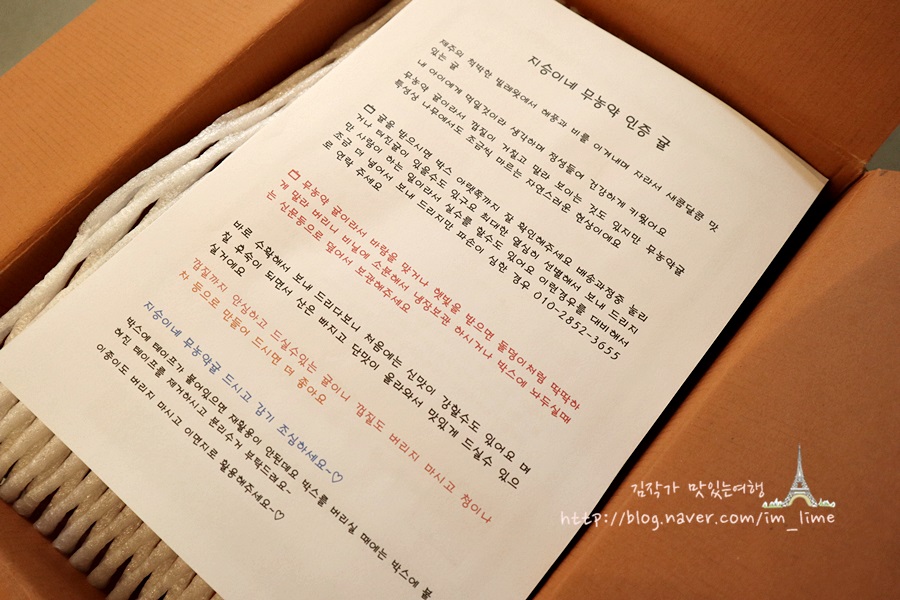 지승이네 무농약 인증 귤
제주의 척박한 빌레왓에서 해풍과 비를 이겨내며 자라서 새콤달콤 맛
있는 귤
내 아이에게 먹일것이라 생각하며 정성들여 건강하게 키웠어요
무농약 귤이라서 껍질이 거칠고 말라 보이는 것도 있지만 무농약귤
특성상 나무에서도 조금씩 마르는 자연스러운 현상이에요
귤을 받으시면 박스 아랫쪽까지 잘 확인해주세요 배송과정중 눌리
거나 터진귤이 있을수도 있구요 최대한 열심히 선별해서 보내 드리지
만 사람이 하는 일이라서 실수를 할수도 있어요 이런경우를 대비해서
조금 더 넣어서 보내 드리지만 파손이 심한 경우 010-2852-3655
로 연락 주세요
무농약 귤이라서 바람을 맞거나 햇빛을 받으면 돌덩이처럼 딱딱하
게 말라 버리니 비닐에 소분해서 냉장보관 하시거나 박스에 놔두실때
는 신문등으로 덮어서 보관해주세요
바로 수확해서 보내 드리다보니 처음에는 신맛이 강할수도 있어요 며
칠 후숙이 되면서 산은 빠지고 단맛이 올라와서 맛있게 드실수 있으
실거에요
껍질까지 안심하고 드실수있는 귤이니 껍질도 버리지 마시고 청이나
차 등으로 만들어 드시면 더 좋아요
지승이네 무농약귤 드시고 감기 조심하세요~♡
박스에 테이프가 붙어있으면 재활용이 안된데요 박스를 버리실 때에는 박스에 붙
혀진 테이프를 제거하시고 분리수거 부탁드려요~
이종이도 버리지 마시고 이면지로 활용해주세요~♡
김작가 맛있는여행
http://blog.naver.com/im_lime